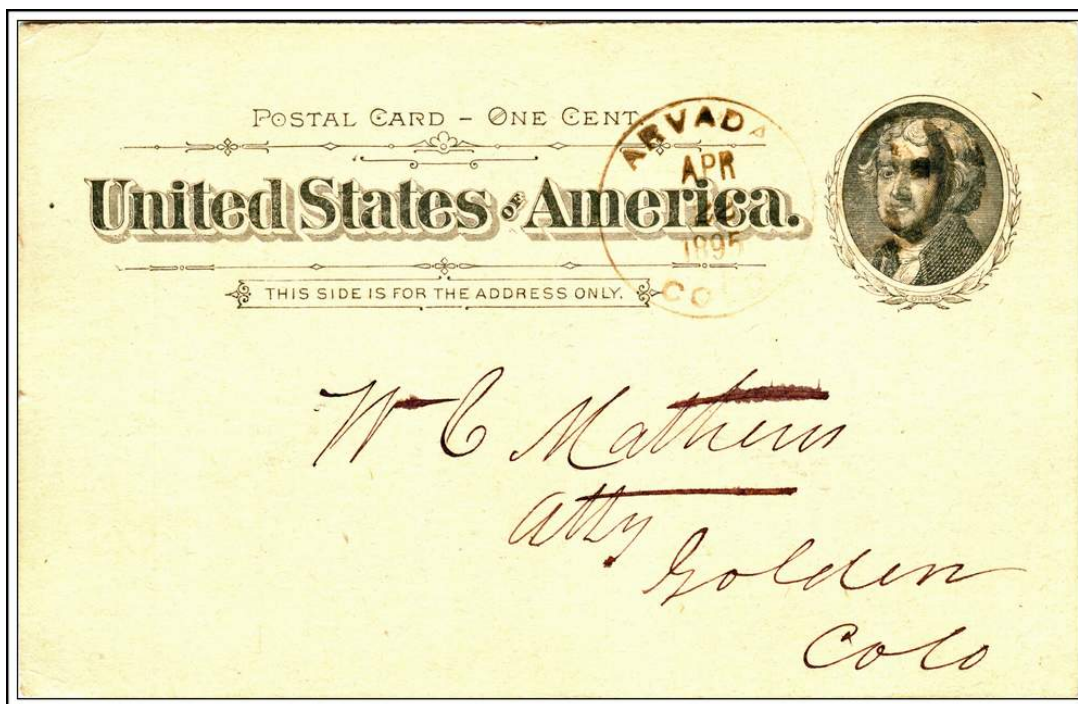 POSTAL CARD – ONE CENT
United States OF America.
THIS SIDE IS FOR THE ADDRESS ONLY.
ARVADA
APR
1895
COLO
W C Mathews
Atty
Golden
Colo